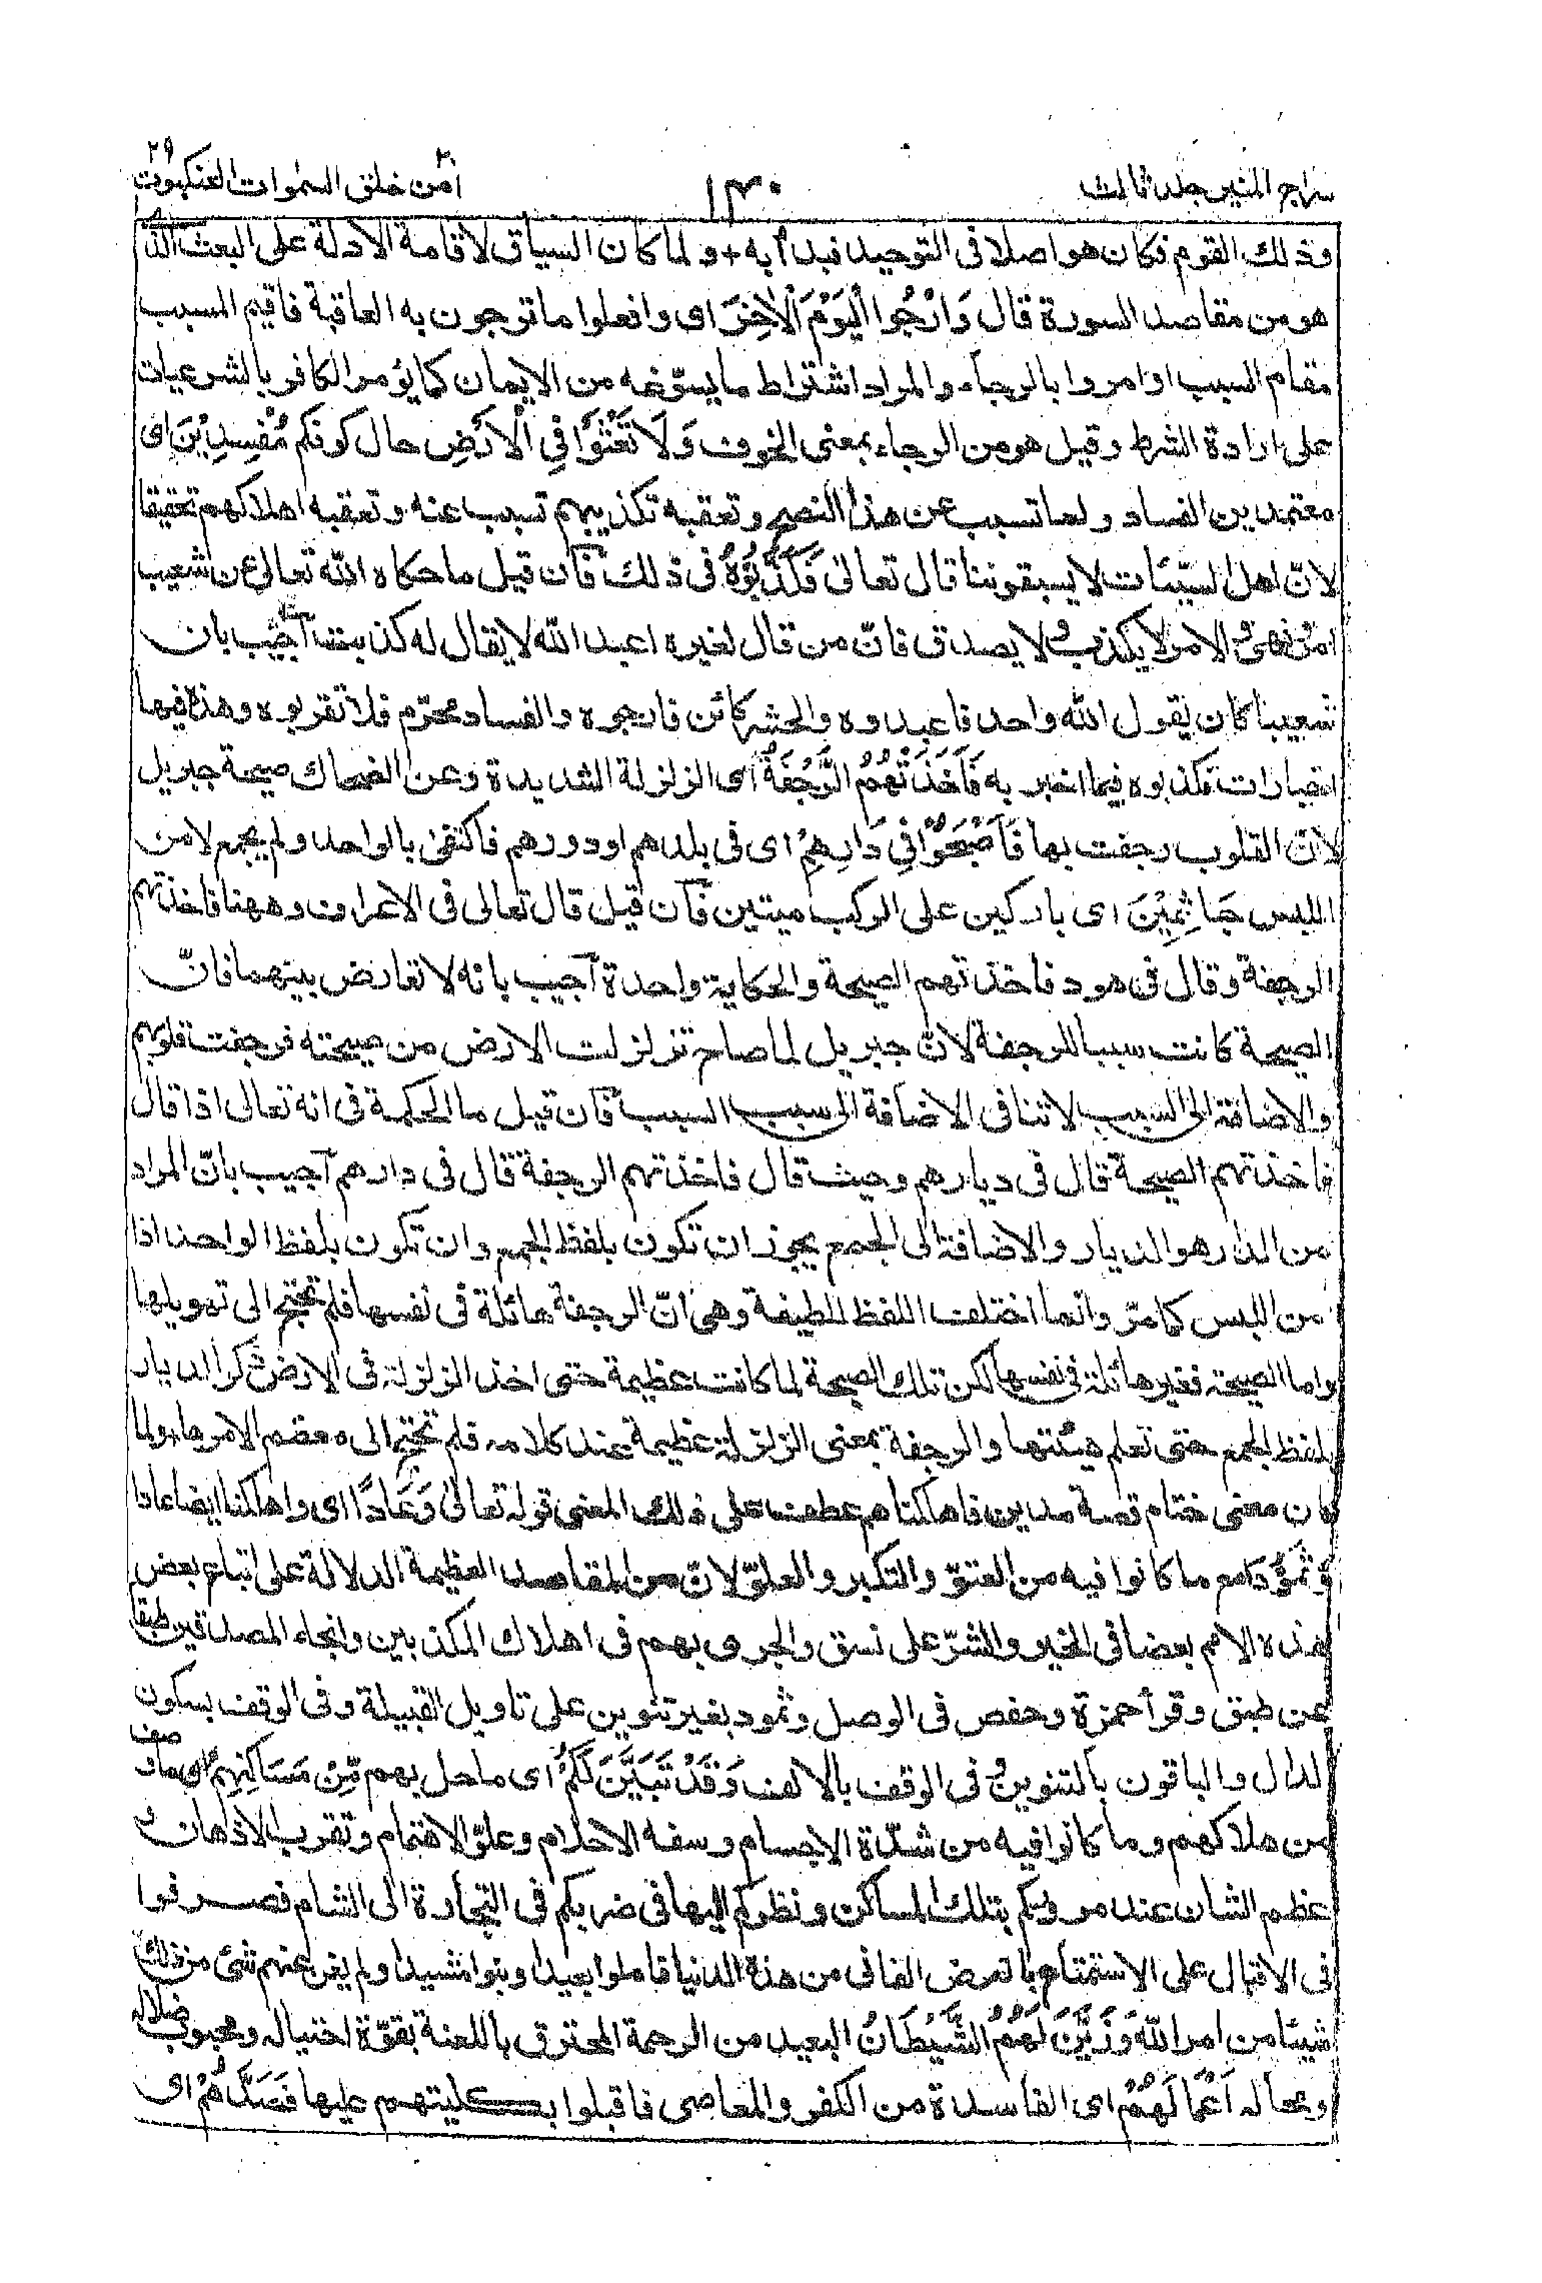 سراج المنير جلد ثالث
١٣٠
امن خلق السموات ٢٠ العنكبوت ٢٩
وذلك القوم فكان هو اصلا فى التوحيد فبدأ به + ولما كان السياق لاقامة الادلة على البعث الذى
هو من مقاصد السورة قال وَارْجُوا الْيَوْمَ الْاٰخِرَ اى وافعلوا ما ترجون به العاقبة فاقيم المسبب
مقام السبب او امروا بالرجاء والمراد اشتراط ما يسوّغه من الايمان كما يؤمر الكافر بالشرعيات
على ارادة الشرط وقيل هو من الرجاء بمعنى الخوف وَلَا تَعْثَوْا فِى الْاَرْضِ حال كونكم مُفْسِدِيْنَ اى
معتمدين الفساد ولما تسبب عن هذا النصح وتعقبه تكذيبهم تسبب عنه وتعقبه اهلاكهم تحقيقا
لانّ اهل السيّئات لا يسبقوننا قال تعالى فَكَذَّبُوْهُ فى ذلك فان قيل ما حكاه الله تعالى عن شعيب
امر ونهى والامر لا يكذب ولا يصدق فانّ من قال لغيره اعبد الله لا يقال له كذبت اجيب بان
شعيبا كان يقول الله واحد فاعبدوه والحشر كائن فارجوه والفساد محرّم فلا تقربوه وهذه فيها
اخبارات فكذبوه فيما اخبر به فَاَخَذَتْهُمُ الرَّجْفَةُ اى الزلزلة الشديدة وعن الضحاك صيحة جبريل
لانّ القلوب رجفت بها فَاَصْبَحُوْا فِى دَارِهِمْ اى فى بلدهم او دورهم فاكتفى بالواحد ولم يجمع لامن
اللبس جَاثِمِيْنَ اى باركين على الركب ميتين فان قيل قال تعالى فى الاعراف وههنا فاخذتهم
الرجفة وقال فى هود فاخذتهم الصيحة والحكاية واحدة اجيب بانه لا تعارض بينهما فانّ
الصيحة كانت سببا للرجفة لانّ جبريل لما صاح تزلزلت الارض من صيحته فرجفت قلوبهم
والاضافة الى السبب لا تنافى الاضافة الى سبب السبب فان قيل ما الحكمة فى انه تعالى اذا قال
فاخذتهم الصيحة قال فى ديارهم وحيث قال فاخذتهم الرجفة قال فى دارهم اجيب بانّ المراد
من الدار هو الديار والاضافة الى الجمع يجوز ان تكون بلفظ الجمع وان تكون بلفظ الواحد اذا
من اللبس كما مرّ وانما اختلف اللفظ للطيفة وهى انّ الرجفة هائلة فى نفسها فلم تحتج الى تهويلها
واما الصيحة فغير هائلة فى نفسها لكن تلك الصيحة لما كانت عظيمة حتى اخذ الزلزلة فى الارض ذكر الديار
بلفظ الجمع حتى تعلم هيئتها والرجفة بمعنى الزلزلة عظيمة عند كلامه فلم تحتج الى معضم الامرها ولما
كان معنى ختام قصة مدين فاهلكناهم عطف على ذلك المعنى قوله تعالى وَعَادًا اى واهلكنا ايضا عادا
وَثَمُوْدَا مع ما كانوا فيه من العتوّ والتكبر والعلوّ لانّ من المقاصد العظيمة الدلالة على اتباع بعض
هذه الامم بعضا فى الخير والشرّ على نسق والجرى بهم فى اهلاك المكذبين وانجاء المصدقين طبقا
عن طبق وقرأ حمزة وحفص فى الوصل وثمود بغير تنوين على تاويل القبيلة وفى الوقف بسكون
الدال والباقون بالتنوين وفى الوقف بالالف وَقَدْ تَبَيَّنَ لَكُمْ اى ما حل بهم مِّنْ مَسَاكِنِهِمْ اى ما وصف
من هلاكهم وما كانوا فيه من شدّة الاجسام وسفه الاحلام وعلوّ الاهتمام وتقرب الاذهان و
عظم الشان عند مروركم بتلك المساكن ونظركم اليها فى ضربكم فى التجارة الى الشام فصرفوا
فى الاقبال على الاستمتاع بالعرض الفانى من هذه الدنيا فاملوا بعيدا وبنوا مشيدا ولم يغن عنهم شئ من ذلك
شيئا من امر الله وَزَيَّنَ لَهُمُ الشَّيْطَانُ البعيد من الرحمة المحترق باللعنة بقوّة احتياله ومحبوب ضلاله
ومحاله اَعْمَالَهُمْ اى الفاسدة من الكفر والمعاصى فاقبلوا بكليتهم عليها فَصَدَّهُمْ اى